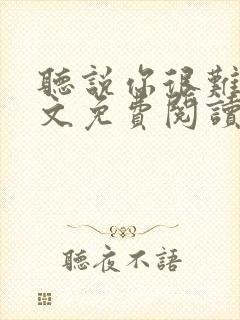 聽說你很難
文免費閱讀
聽夜不語